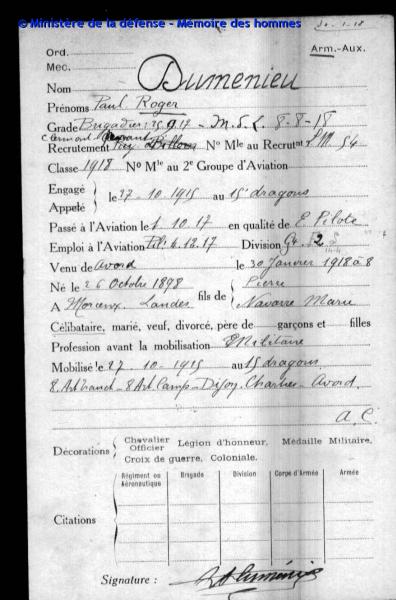 © Ministère de la défense - Mémoire des hommes
Ord. Arm.-Aux.
Mec.
Nom Dumenieu
Prénoms Paul Roger
Grade Brigadier 25.9.17 - M.d.L. 8-8-18
Recrutement Puy N° Mle au Recrutt PM. 54
Classe 1918 N° Mle au 2e Groupe d'Aviation
Engagé
Appelé le 27-10-1915 au 15e dragons
Passé à l'Aviation le 1.10.17 en qualité de E. Pilote
Emploi à l'Aviation Pil. 4.12.17 Division
Venu de Avord le 30 Janvier 1918 à 8
Né le 26 Octobre 1898 fils de Pierre
A Morcenx Landes Navarre Marie
Célibataire, marié, veuf, divorcé, père de garçons et filles
Profession avant la mobilisation Militaire
Mobilisé le 27-10-1915 au 15 dragons
Dijon, Chartres - Avord.
A.C.
Décorations Chevalier Officier Légion d'honneur, Médaille Militaire,
Croix de guerre, Coloniale.
Régiment ou Aéronautique Brigade Division Corps d'Armée Armée
Citations
Signature :